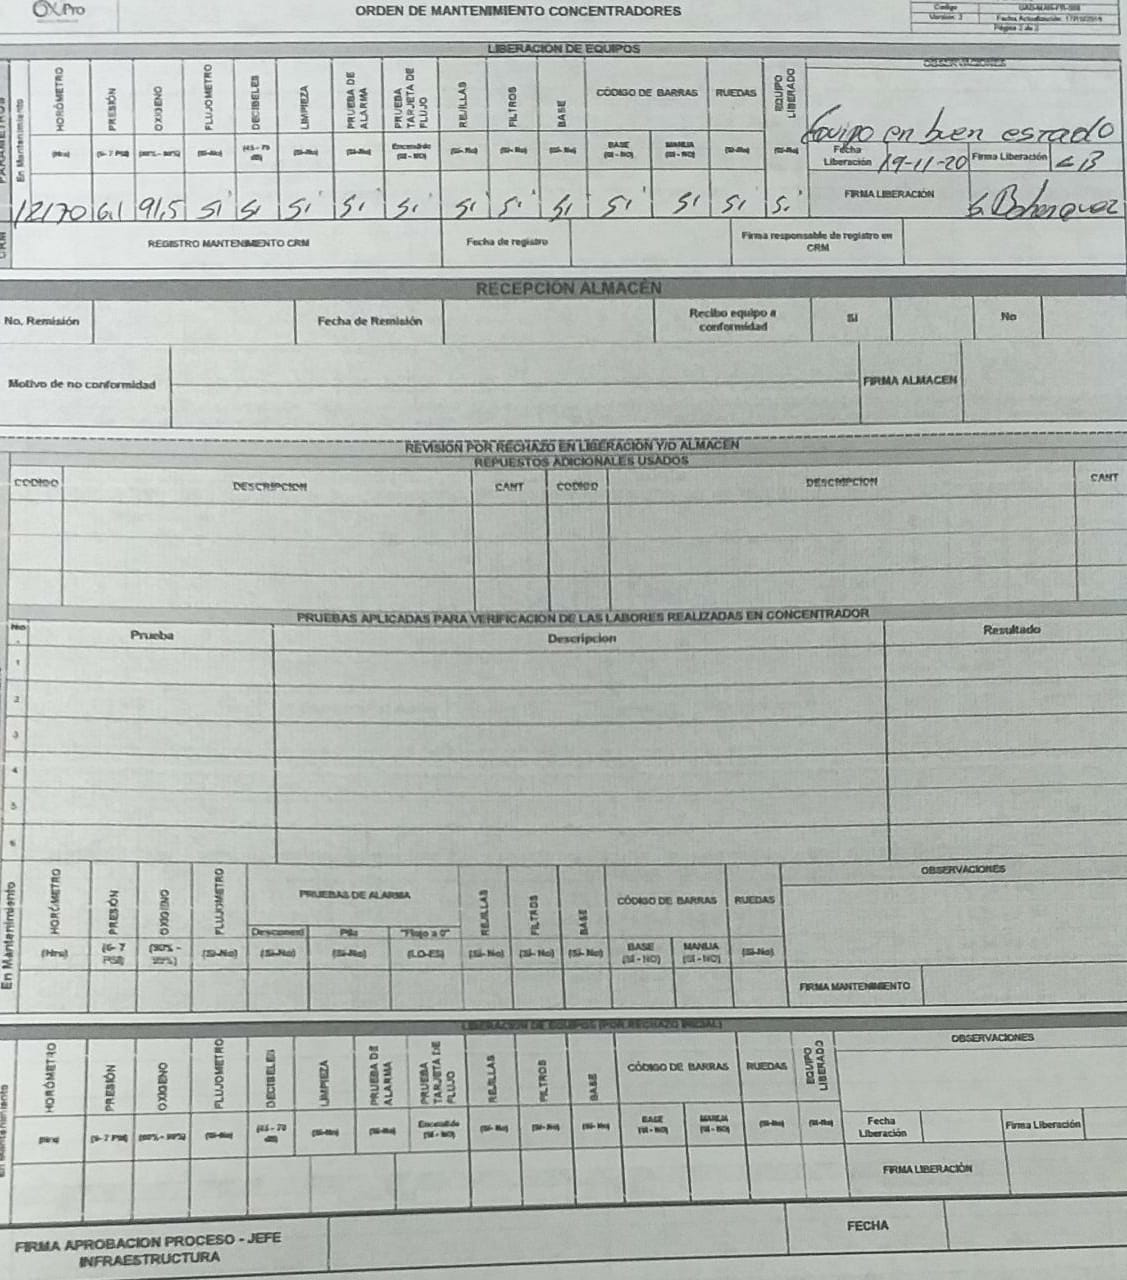 OXPro
ORDEN DE MANTENIMIENTO CONCENTRADORES
Codigo
Versión: 3
Página 2 de 2
LIBERACION DE EQUIPOS
PARAMETROS
En Mantenimiento
HORÓMETRO
PRESIÓN
OXIGENO
FLUJOMETRO
DECIBELES
LIMPIEZA
PRUEBA DE ALARMA
PRUEBA TARJETA DE FLUJO
REJILLAS
FILTROS
BASE
CÓDIGO DE BARRAS
RUEDAS
EQUIPO LIBERADO
OBSERVACIONES
Equipo en buen estado
(Hrs) (6- 7 PSI) (90% - 99%) (Si-No) (45 - 70 dB) (Si-No) (Si-No) Encendido (SI - NO) (Si- No) (Si- No) (Si- No) BASE (SI - NO) MANIJA (SI - NO) (Si-No) (Si-No)
Fecha Liberación 19-11-20 Firma Liberación
12170 6.1 91,5 Si Si Si Si Si Si Si Si Si Si Si Si
FIRMA LIBERACIÓN
CRM
REGISTRO MANTENIMIENTO CRM
Fecha de registro
Firma responsable de registro en CRM
RECEPCION ALMACÉN
No. Remisión
Fecha de Remisión
Recibo equipo a conformidad
SI
No
Motivo de no conformidad
FIRMA ALMACEN
REVISION POR RECHAZO EN LIBERACION Y/O ALMACEN
REPUESTOS ADICIONALES USADOS
CODIGO DESCRIPCION CANT CODIGO DESCRIPCION CANT
PRUEBAS APLICADAS PARA VERIFICACION DE LAS LABORES REALIZADAS EN CONCENTRADOR
No. Prueba Descripcion Resultado
1
2
3
4
5
6
En Mantenimiento
HORÓMETRO
PRESIÓN
OXIGENO
FLUJOMETRO
PRUEBAS DE ALARMA
REJILLAS
FILTROS
BASE
CÓDIGO DE BARRAS
RUEDAS
OBSERVACIONES
Desconexi Pila "Flujo a 0"
(Hrs) (6- 7 PSI) (90% - 99%) (Si-No) (Si-No) (Si-No) (LO-ES) (Si- No) (Si- No) (Si- No) BASE (SI - NO) MANIJA (SI - NO) (Si-No)
FIRMA MANTENIMIENTO
LIBERACION DE EQUIPOS (POR RECHAZO INICIAL)
En Mantenimiento
HORÓMETRO
PRESIÓN
OXIGENO
FLUJOMETRO
DECIBELES
LIMPIEZA
PRUEBA DE ALARMA
PRUEBA TARJETA DE FLUJO
REJILLAS
FILTROS
BASE
CÓDIGO DE BARRAS
RUEDAS
EQUIPO LIBERADO
OBSERVACIONES
(Hrs) (6- 7 PSI) (90% - 99%) (Si-No) (45 - 70 dB) (Si-No) (Si-No) Encendido (SI - NO) (Si- No) (Si- No) (Si- No) BASE (SI - NO) MANIJA (SI - NO) (Si-No) (Si-No)
Fecha Liberación
Firma Liberación
FIRMA LIBERACIÓN
FIRMA APROBACION PROCESO - JEFE INFRAESTRUCTURA
FECHA